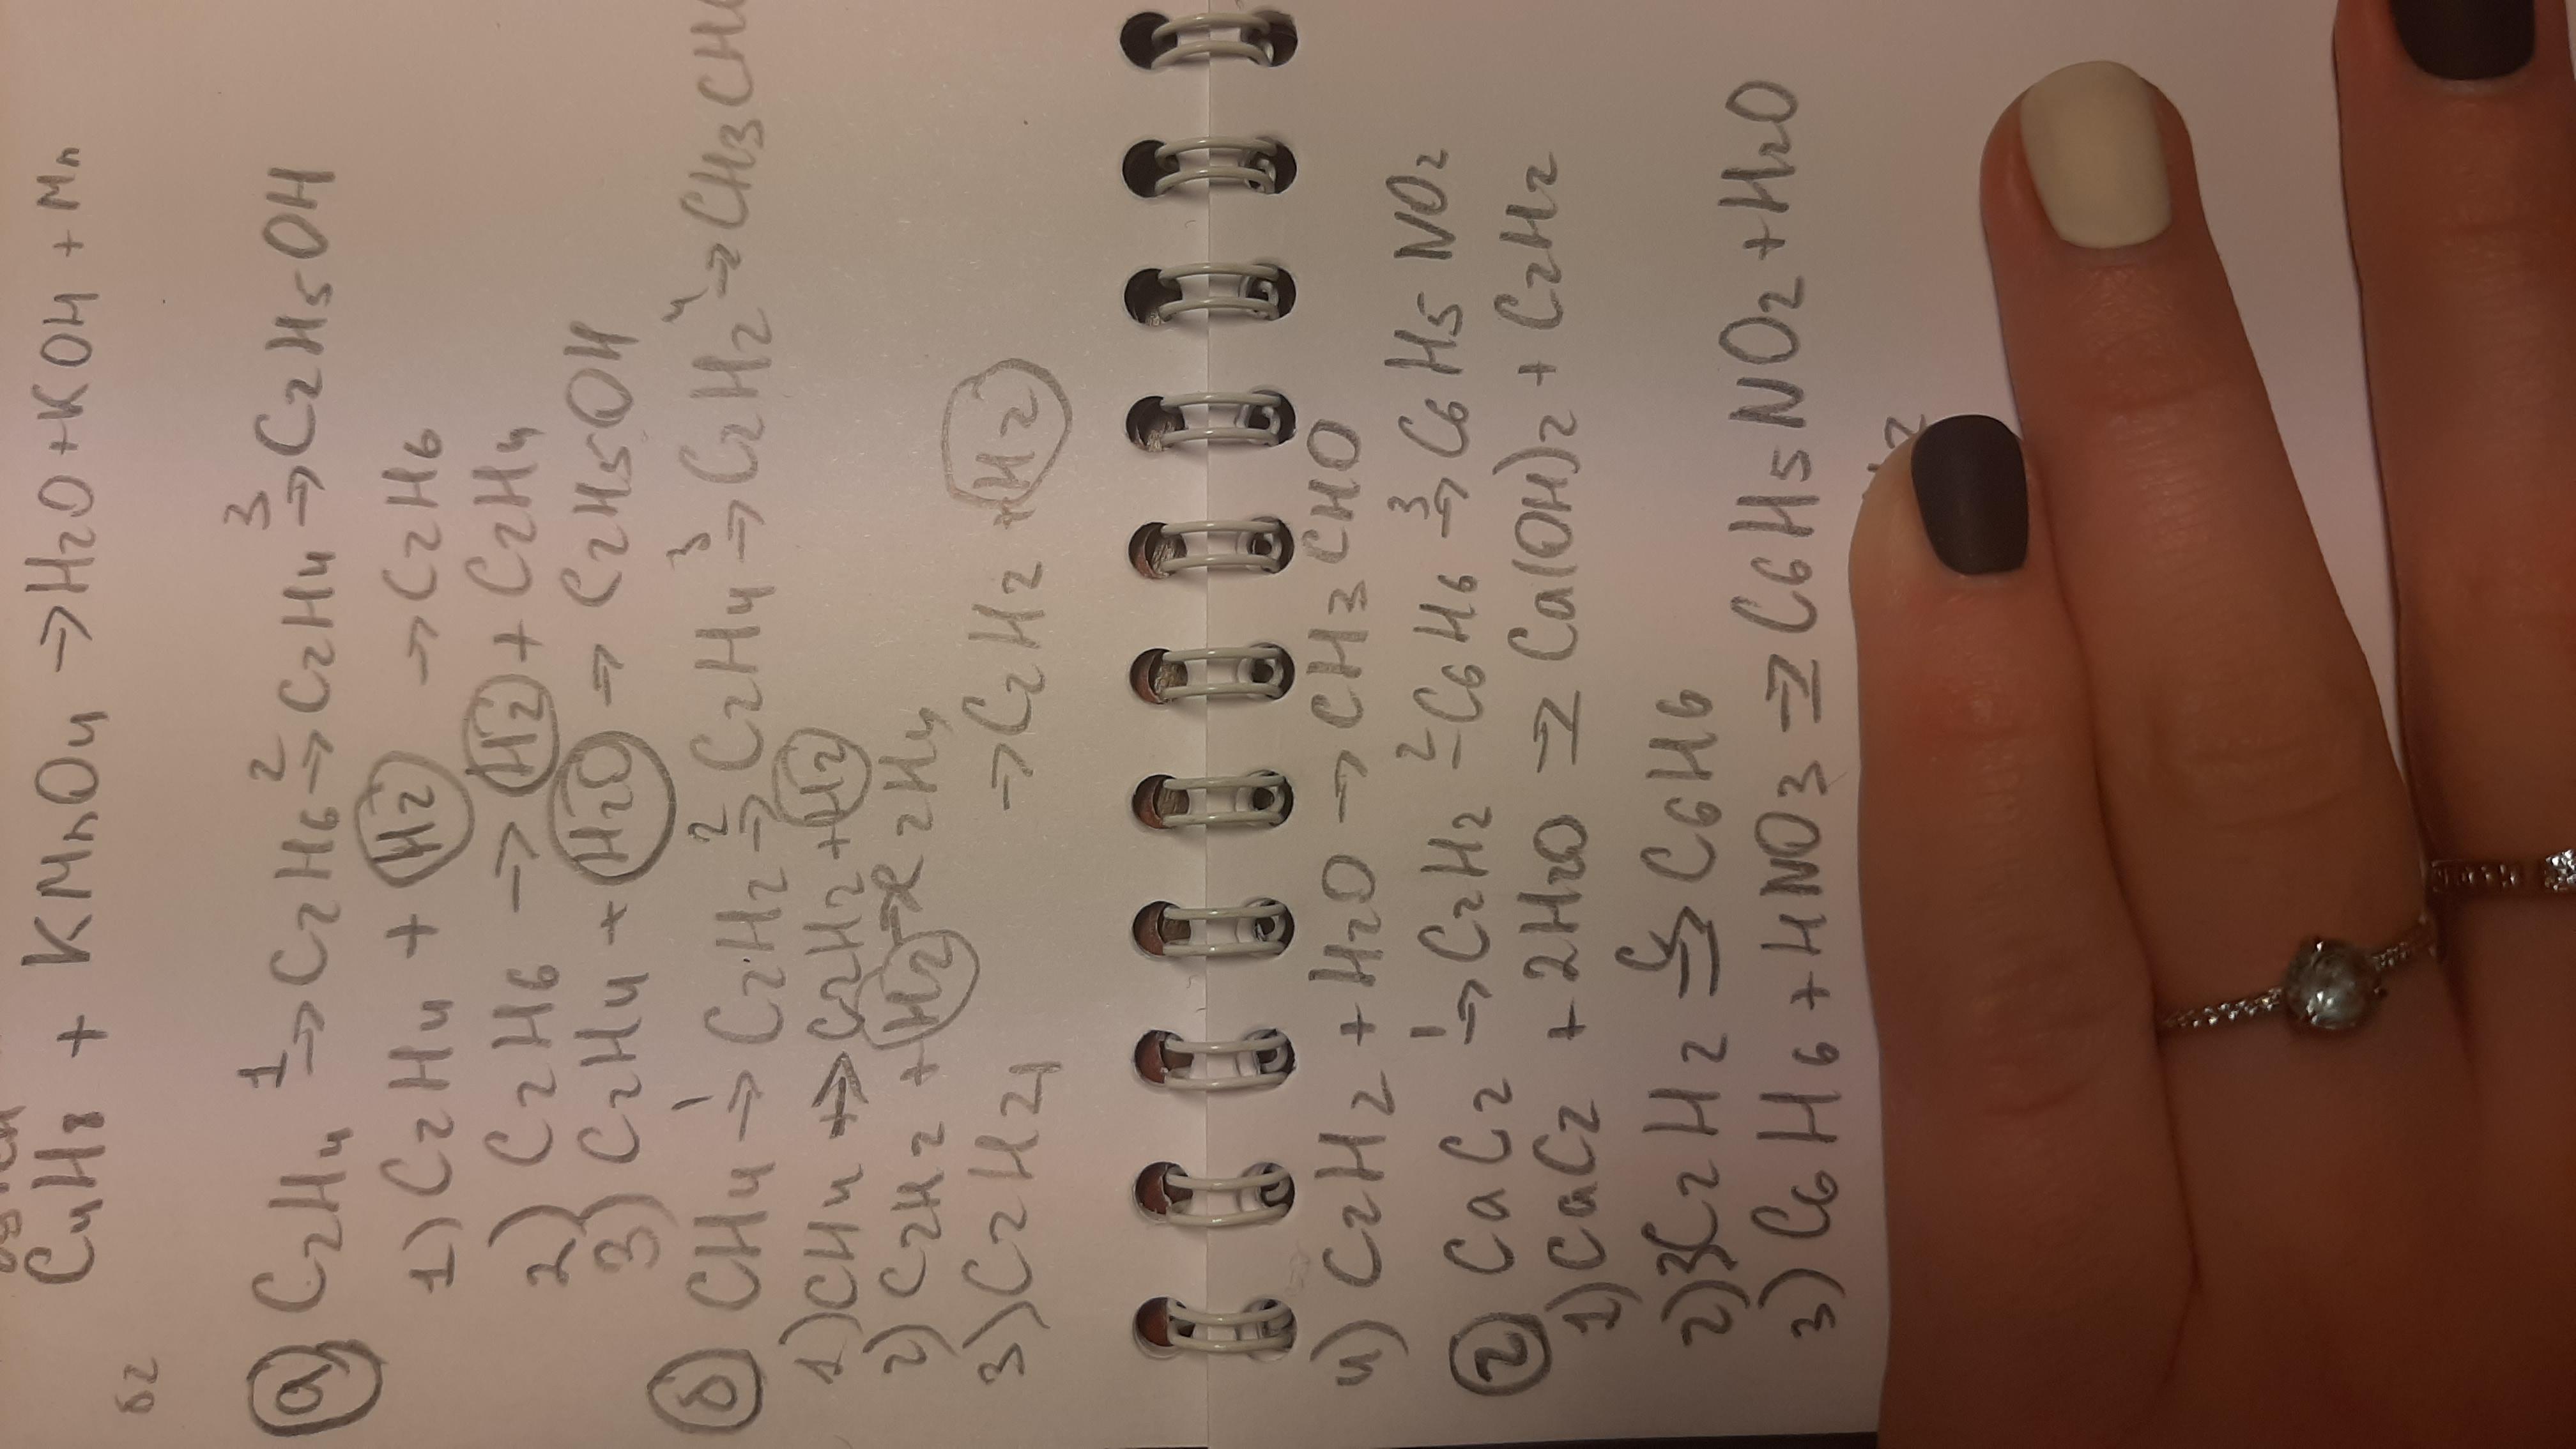 C4H8 + KMnO4 → H2O + KOH + Mn
б2
а) C2H4 1→ C2H6 2→ C2H4 3→ C2H5OH
1) C2H4 + H2 → C2H6
2) C2H6 → H2 + C2H4
3) C2H4 + H2O → C2H5OH
б) CH4 1→ C2H2 2→ C2H4 3→ C2H2 4→ CH3CH
1) CH4 → C2H2 + H2
2) C2H2 + H2 → C2H4
3) C2H4 → C2H2 + H2
4) C2H2 + H2O → CH3CHO
2 CaC2 1→ C2H2 2– C6H6 3→ C6H5NO2
1) CaC2 + 2H2O → Ca(OH)2 + C2H2
2) 3C2H2 C→ C6H6
3) C6H6 + HNO3 → C6H5NO2 + H2O